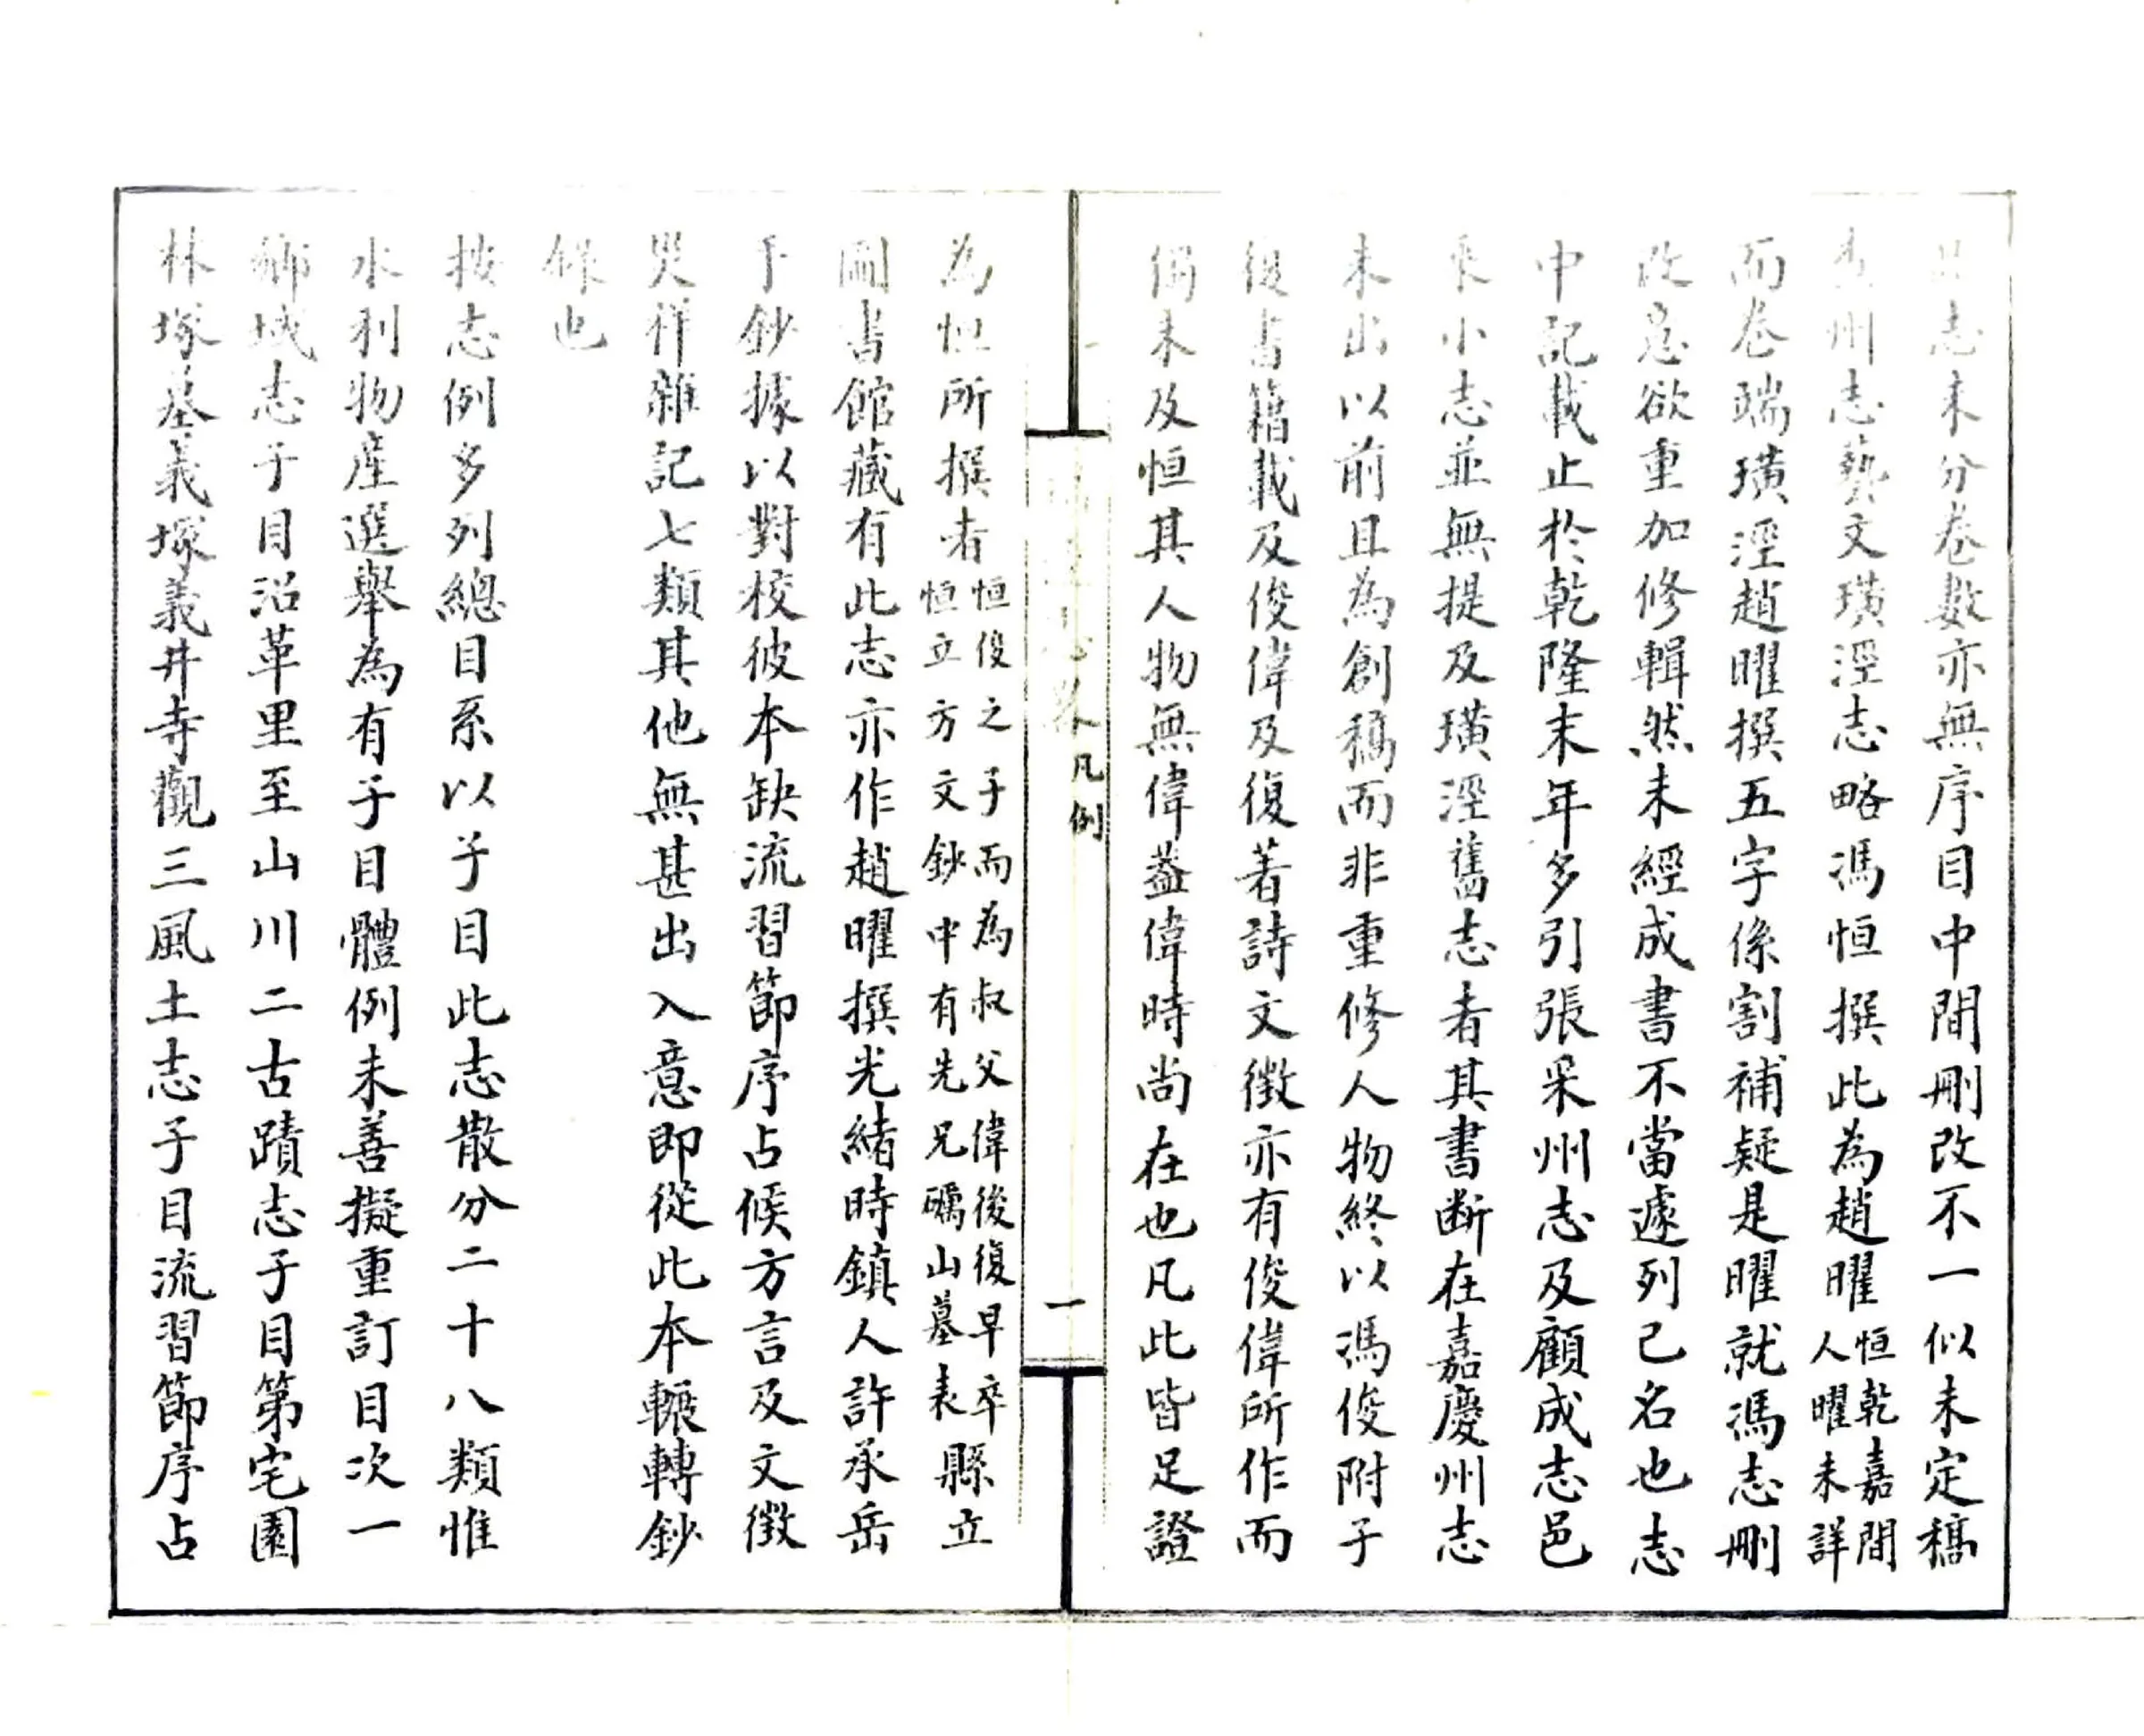 此志未分卷數亦無序目中間刪改不一似未定稿
州志藝文璜涇志略馮恒撰此為趙曜恒乾嘉間人曜未詳
而卷端璜涇趙曜撰五字係割補疑是曜就馮志刪
改意欲重加修輯然未經成書不當遽列己名也志
中記載止於乾隆末年多引張采州志及顧成志邑
乘小志並無提及璜涇舊志者其書斷在嘉慶州志
未出以前且為創稿而非重修人物終以馮俊附子
復書籍載及俊偉及復著詩文徵亦有俊偉所作而
獨未及恒其人物無偉蓋偉時尚在也凡此皆足證
凡例
一
為恒所撰者恒俊之子而為叔父偉後復早卒恒立方文鈔中有先兄礪山墓表縣立
圖書館藏有此志亦作趙曜撰光緒時鎮人許承岳
手鈔據以對校彼本缺流習節序占候方言及文徵
災祥雜記七類其他無甚出入意即從此本輾轉鈔
錄也
按志例多列總目系以子目此志散分二十八類惟
水利物產選舉為有子目體例未善擬重訂目次一
鄉域志子目沿革里至山川二古蹟志子目第宅園
林塚墓義塚義井寺觀三風土志子目流習節序占